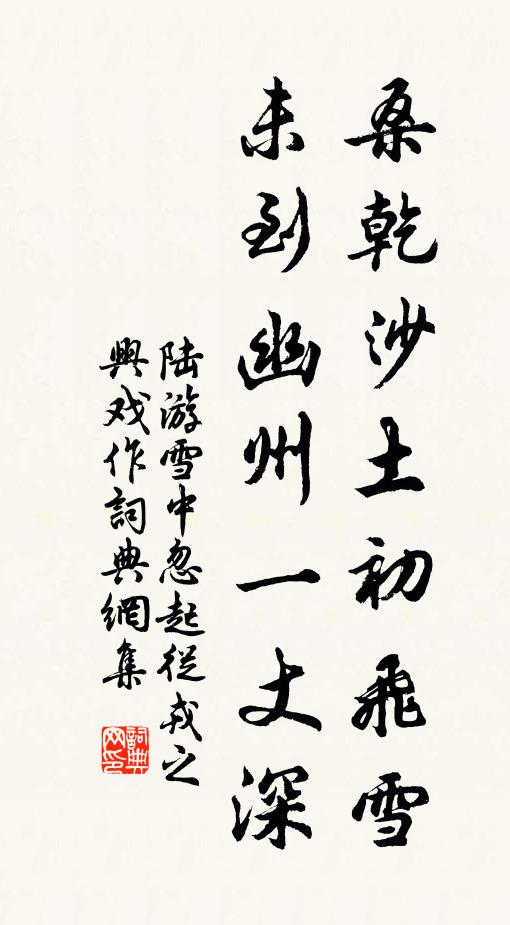 桑乾沙土初飛雪
未到幽州一丈深
陆游雪中忽起從戎之
興戏作詞典網集
詞典网印